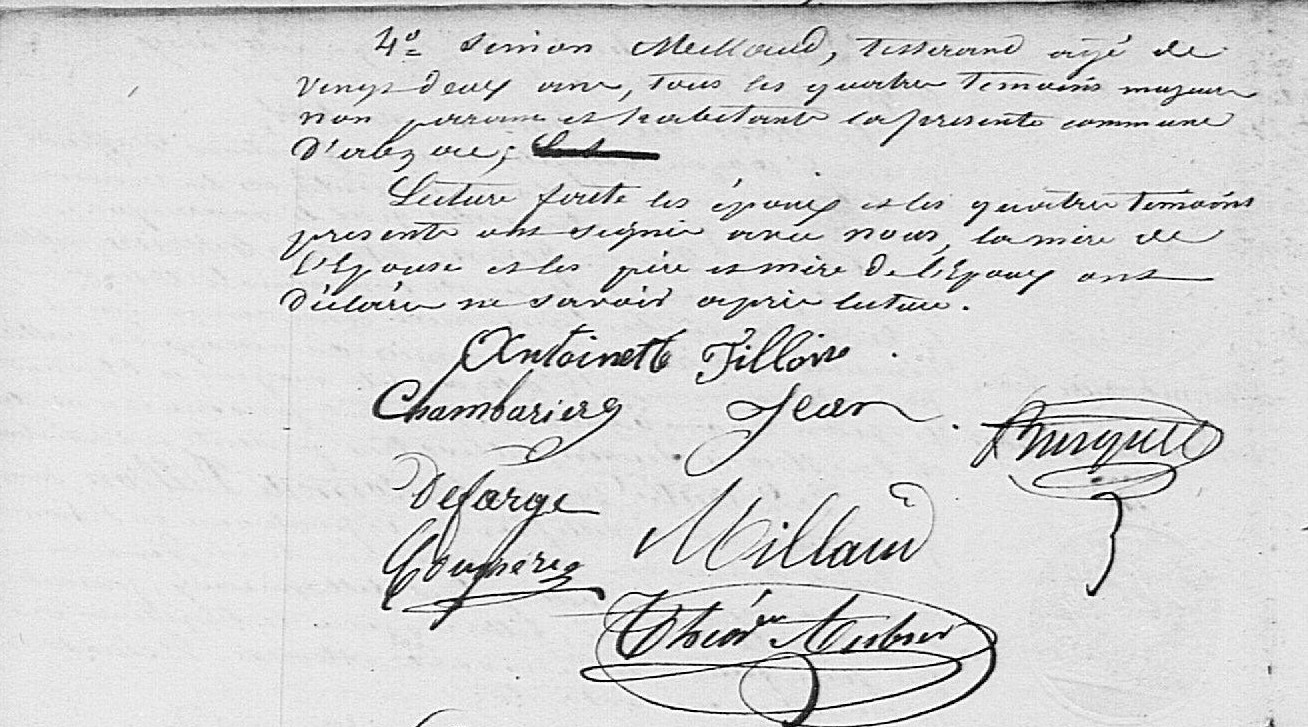 4° Simon Meilloud, tisserand âgé de
vingt deux ans, tous les quatre témoins majeurs
non parans et habitants la présente commune
D'
Lecture faite les époux et les quatre témoins
présents ont signé avec nous, la mère de
l'Epouse et les père et mère de l'Epoux ont
Déclaré ne savoir après lecture.
Antoinette Fillon
Chambariere Jean
Defarge
Millaud